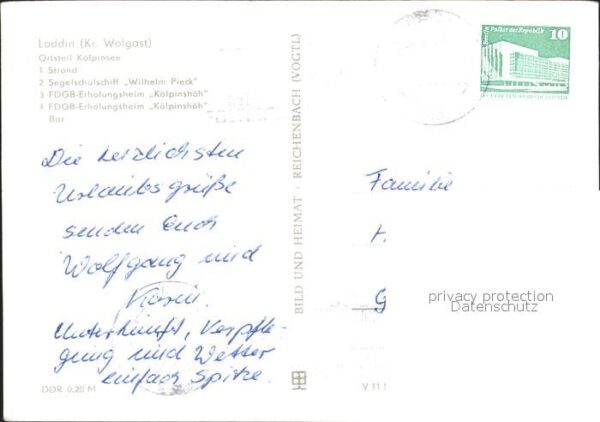 Loddin (Kr. Wolgast)
Ortsteil Kölpinsee
1 Strand
2 Segelschulschiff „Wilhelm Pieck"
3 FDGB-Erholungsheim „Kölpinshöh"
4 FDGB-Erholungsheim „Kölpinshöh"
Bar
Die herzlichsten
Urlaubsgrüße
senden Euch
Wolfgang und
Karin.
Unterkunft, Verpfle-
gung und Wetter
einfach Spitze.
DDR 0,20 M
BILD UND HEIMAT · REICHENBACH (VOGTL)
Palast der Republik
10
Familie
G
privacy protection
Datenschutz
V 11